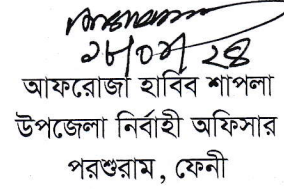 আফরোজা হাবিব শাপলা
উপজেলা নির্বাহী অফিসার
পরশুরাম, ফেনী